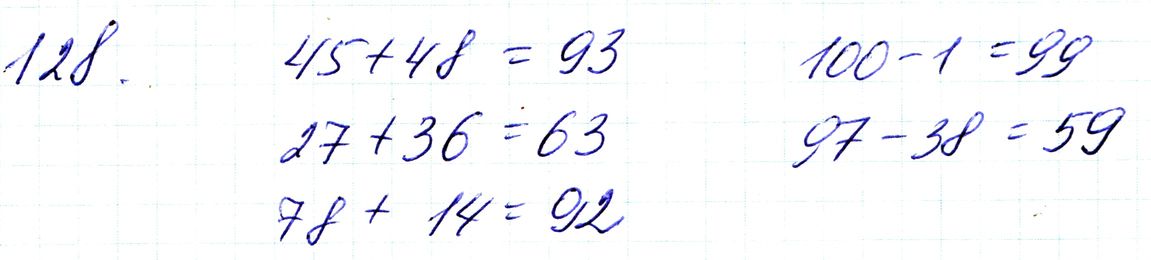 128. 45+48 = 93 100-1 = 99
27+36 = 63 97-38 = 59
78+ 14 = 92